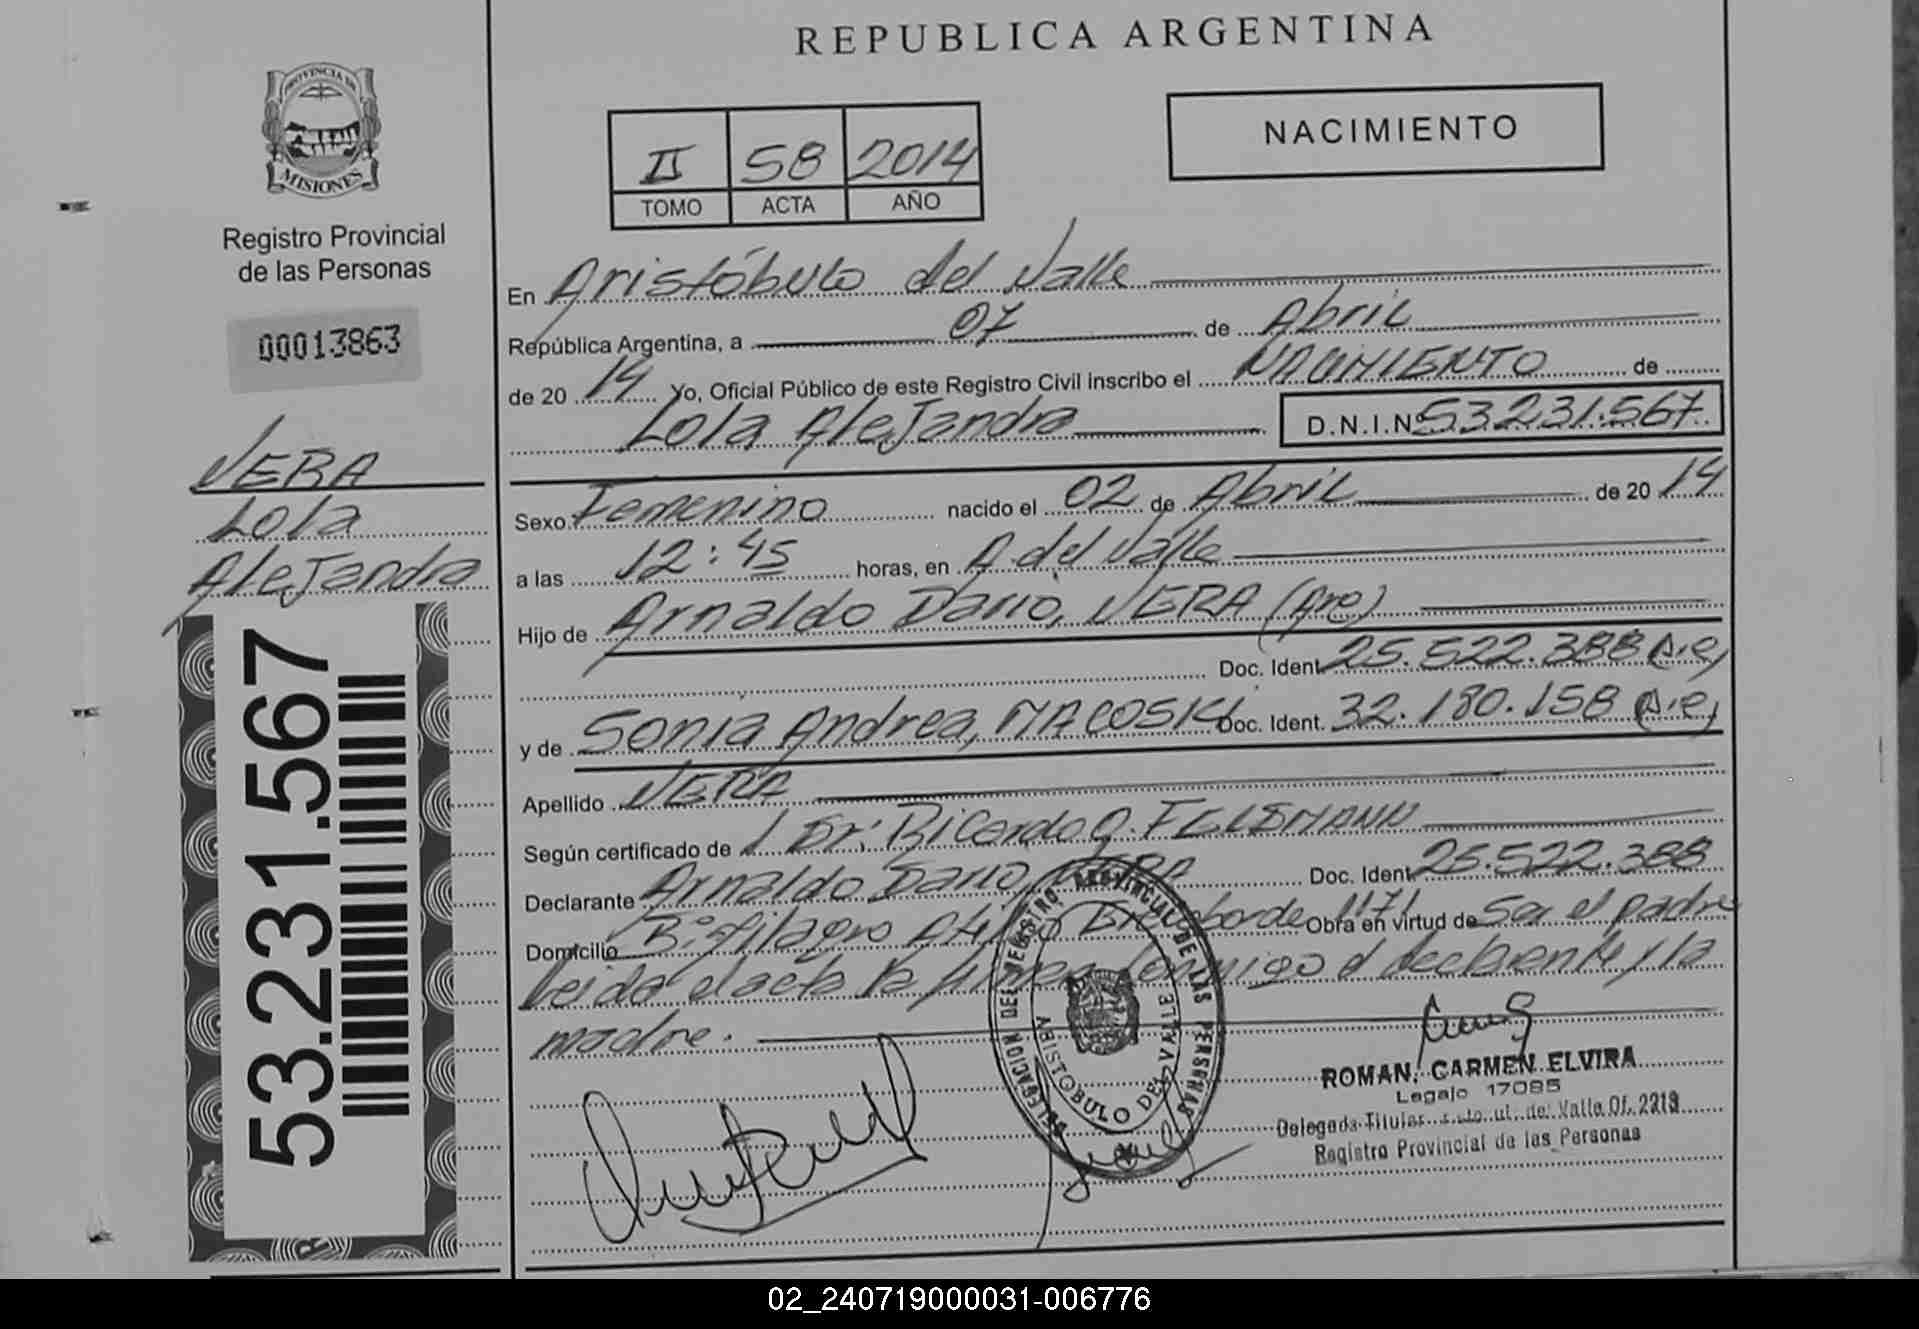 REPUBLICA ARGENTINA
PROVINCIA DE
MISIONES
Registro Provincial
de las Personas
00013863
VERA
Lola
Alejandra
53.231.567
II 58 2014
TOMO ACTA AÑO
NACIMIENTO
En Aristóbulo del Valle
República Argentina, a 07 de Abril
de 20 14 Yo, Oficial Público de este Registro Civil inscribo el NACIMIENTO de
Lola Alejandra D.N.I.Nº 53.231.567.
Sexo Femenino nacido el 02 de Abril de 20 14
a las 12:45 horas, en A. del Valle
Hijo de Arnaldo Dario, VERA (Arg)
Doc. Ident. 25.522.388
y de Sonia Andrea, MACOSKI Doc. Ident. 32.180.158
Apellido VERA
Según certificado de Dr. Ricardo G.
Declarante Arnaldo Dario VERA Doc. Ident. 25.522.388
Domicilio Bº Milagro Obra en virtud de Ser el padre
Leida el acta la conmigo el declarante y la
madre.
DELEGACION DEL REGISTRO PROVINCIAL DE LAS PERSONAS
ARISTOBULO DEL VALLE
ROMAN, CARMEN ELVIRA
Legajo 17085
Delegada Titular del Valle Of. 2213
Registro Provincial de las Personas
02_240719000031-006776